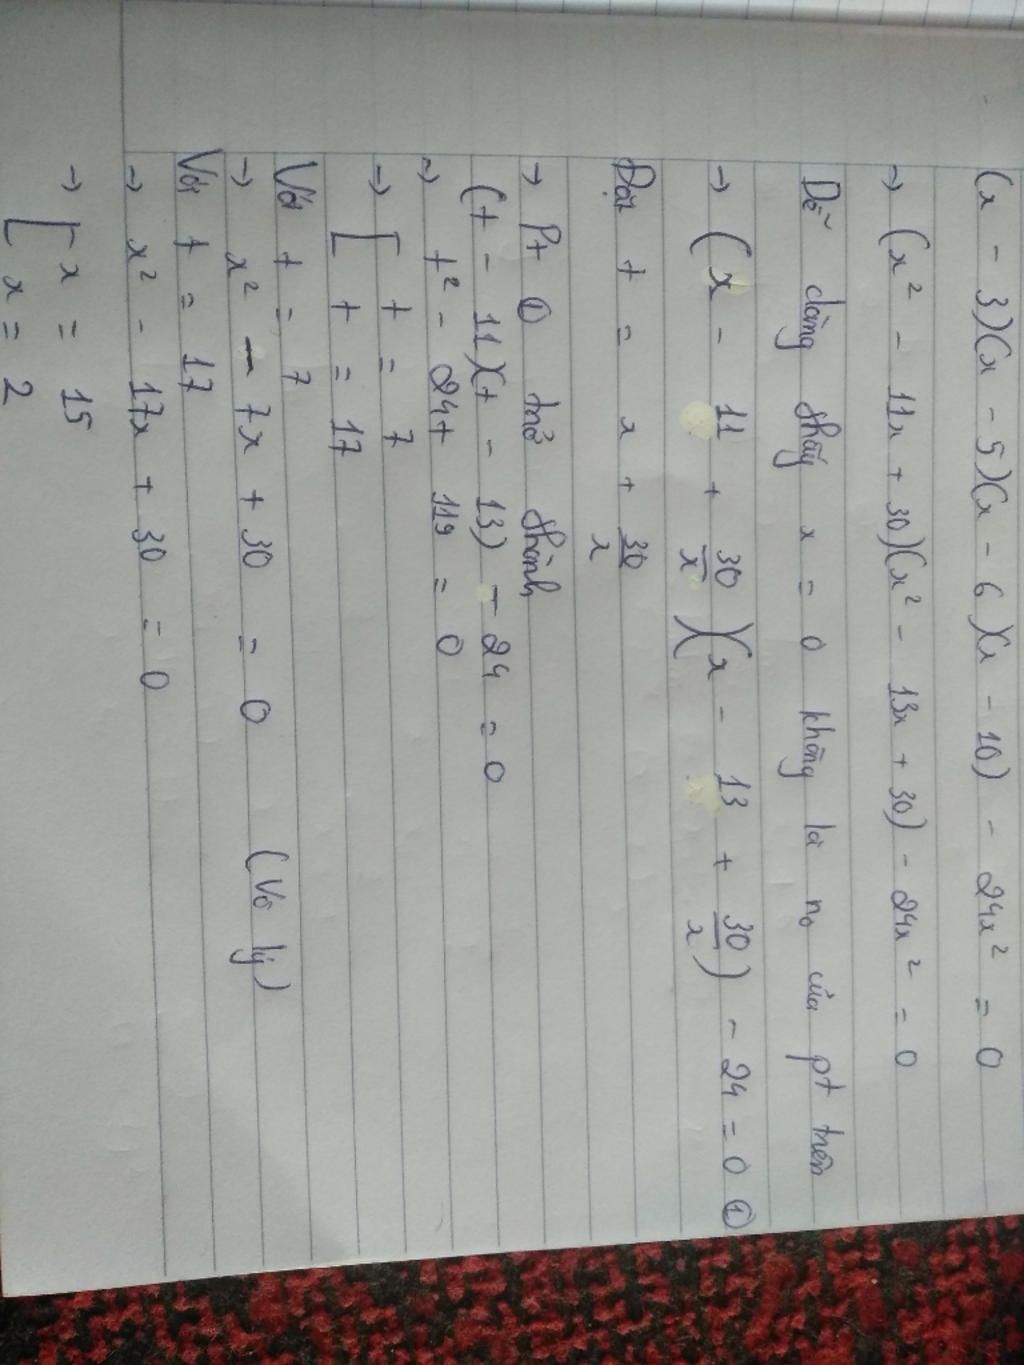 (x - 3)(x - 5)(x - 6)(x - 10) - 24x² = 0
→ (x² - 11x + 30)(x² - 13x + 30) - 24x² = 0
Dễ dàng thấy x = 0 không là no của pt trên
→ (x - 11 + 30/x)(x - 13 + 30/x) - 24 = 0 ①
Đặt t = x + 30/x
→ Pt ① trở thành
(t - 11)(t - 13) - 24 = 0
→ t² - 24t + 119 = 0
→ [ t = 7
[ t = 17
Với t = 7
→ x² - 7x + 30 = 0 (Vô lý)
Với t = 17
→ x² - 17x + 30 = 0
→ [ x = 15
[ x = 2